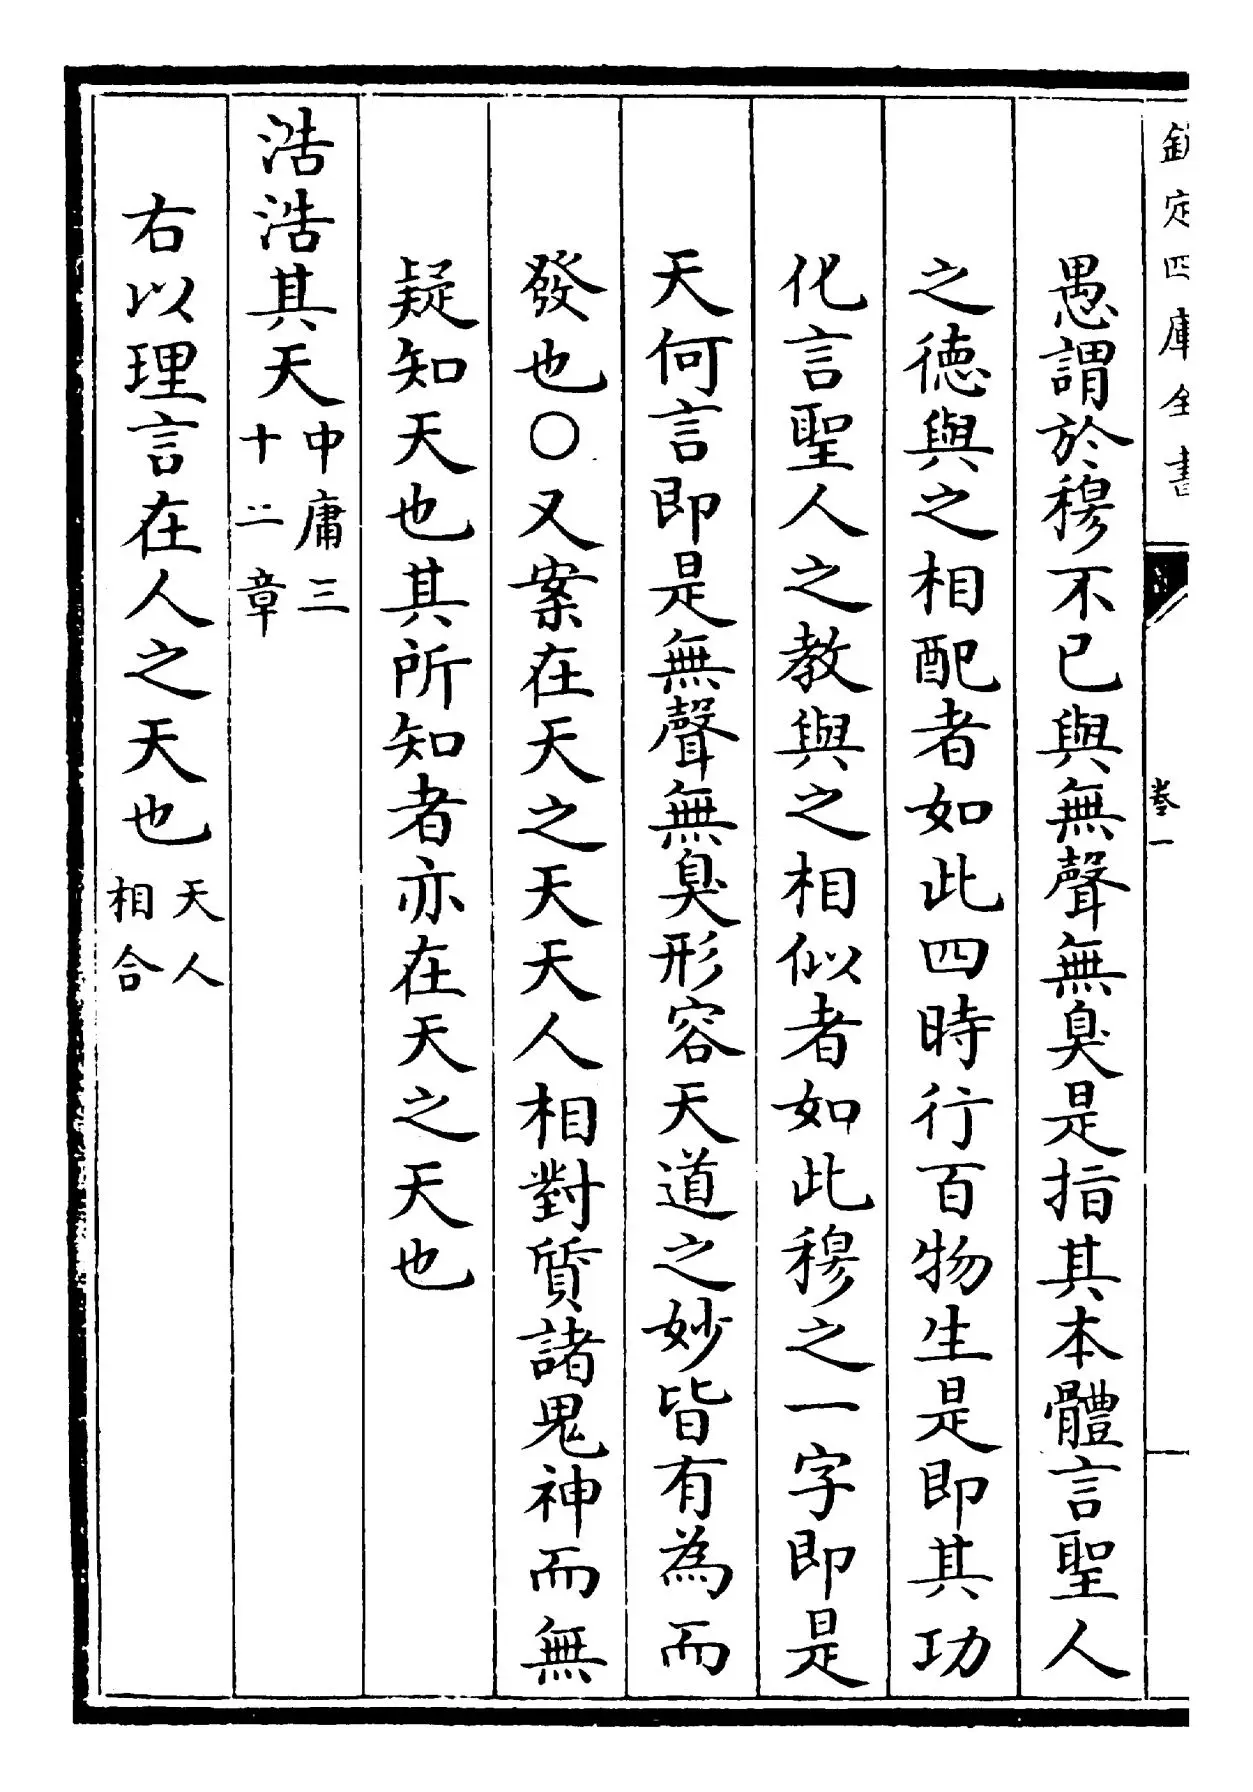 欽定四庫全書
卷一
愚謂於穆不已與無聲無臭是指其本體言聖人
之徳與之相配者如此四時行百物生是即其功
化言聖人之教與之相似者如此穆之一字即是
天何言即是無聲無臭形容天道之妙皆有為而
發也○又案在天之天天人相對質諸鬼神而無
疑知天也其所知者亦在天之天也
浩浩其天中庸三十二章
右以理言在人之天也天人相合